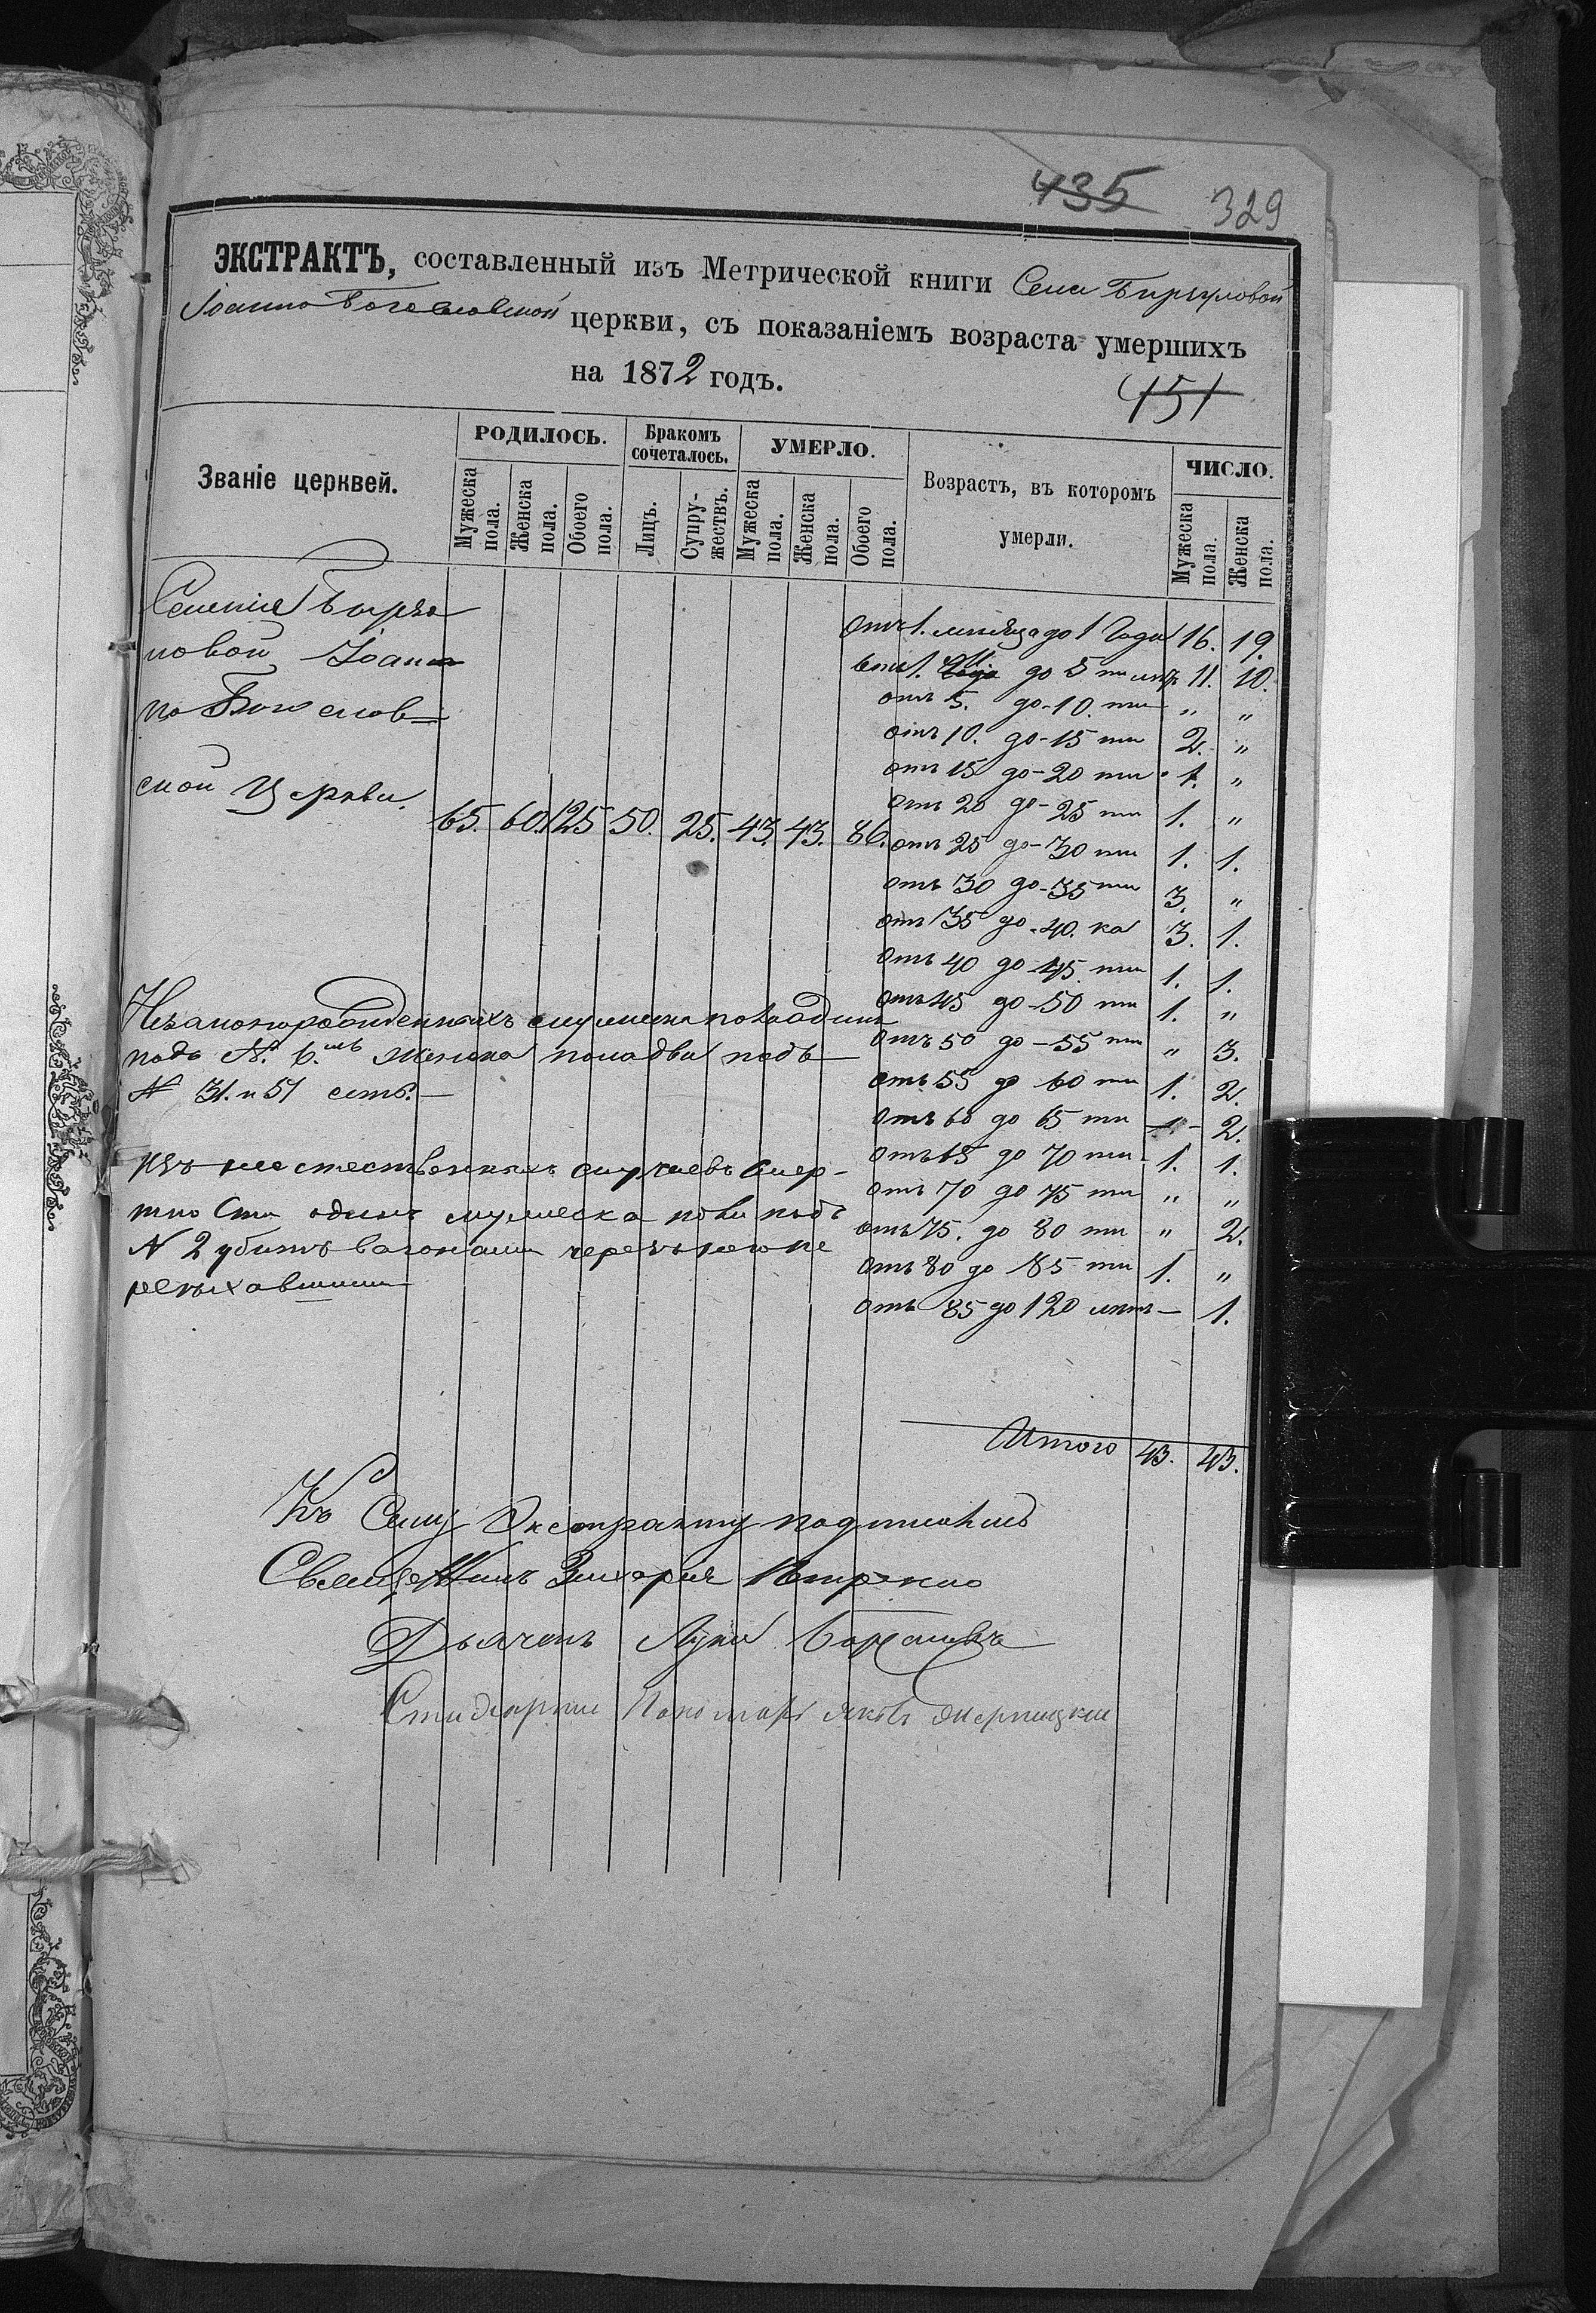 435 329
ЭКСТРАКТЪ, составленный изъ Метрической книги Села Бирзуловой
Іоанно Богословской церкви, съ показаніемъ возраста умершихъ
на 1872 годъ.
451
Званіе церквей.
РОДИЛОСЬ.
Мужеска пола.
Женска пола.
Обоего пола.
Бракомъ сочеталось.
Лицъ.
Супружествъ.
УМЕРЛО.
Мужеска пола.
Женска пола.
Обоего пола.
Возрастъ, въ которомъ умерли.
ЧИСЛО.
Мужеска пола.
Женска пола.
Селенія Бырзу
ловой Іоан
но Богослов=
ской Церкви.
65. 60. 125 50. 25. 43. 43. 86.
Отъ 1. мѣсяца до 1 Года 16. 19.
отъ 1. до 5 ти лѣтъ 11. 10.
отъ 5. до-10. ти " "
отъ 10. до-15 ти 2. "
отъ 15 до-20 ти 1. "
отъ 20 до-25 ти 1. "
отъ 25 до-30 ти 1. 1.
отъ 30 до-35 ти 3. "
отъ 35 до-40. ка 3. 1.
отъ 40 до-45 ти 1. 1.
отъ 45 до-50 ти 1. "
отъ 50 до-55 ти " 3.
отъ 55 до 60 ти 1. 2.
отъ 60 до 65 ти 1 2.
отъ 65 до 70 ти 1. 1.
отъ 70 до 75 ти " "
отъ 75. до 80 ти " 2.
отъ 80 до 85 ти 1. "
отъ 85 до 120 лѣтъ — 1.
Итого 43. 43.
Незаконорожденныхъ мужеска пола одинъ
подъ №. 6.мъ Женска пола два подъ
№ 31. и 51
Изъ неестественныхъ случаевъ смер-
тно сти одинъ мужеска пола подъ
№ 2 убитъ вагонами черезъ него пе
реѣхавшими
Къ Сему Экстракту подписались
Священникъ Захарія
Дьячекъ Лука
Пономарь Яковъ